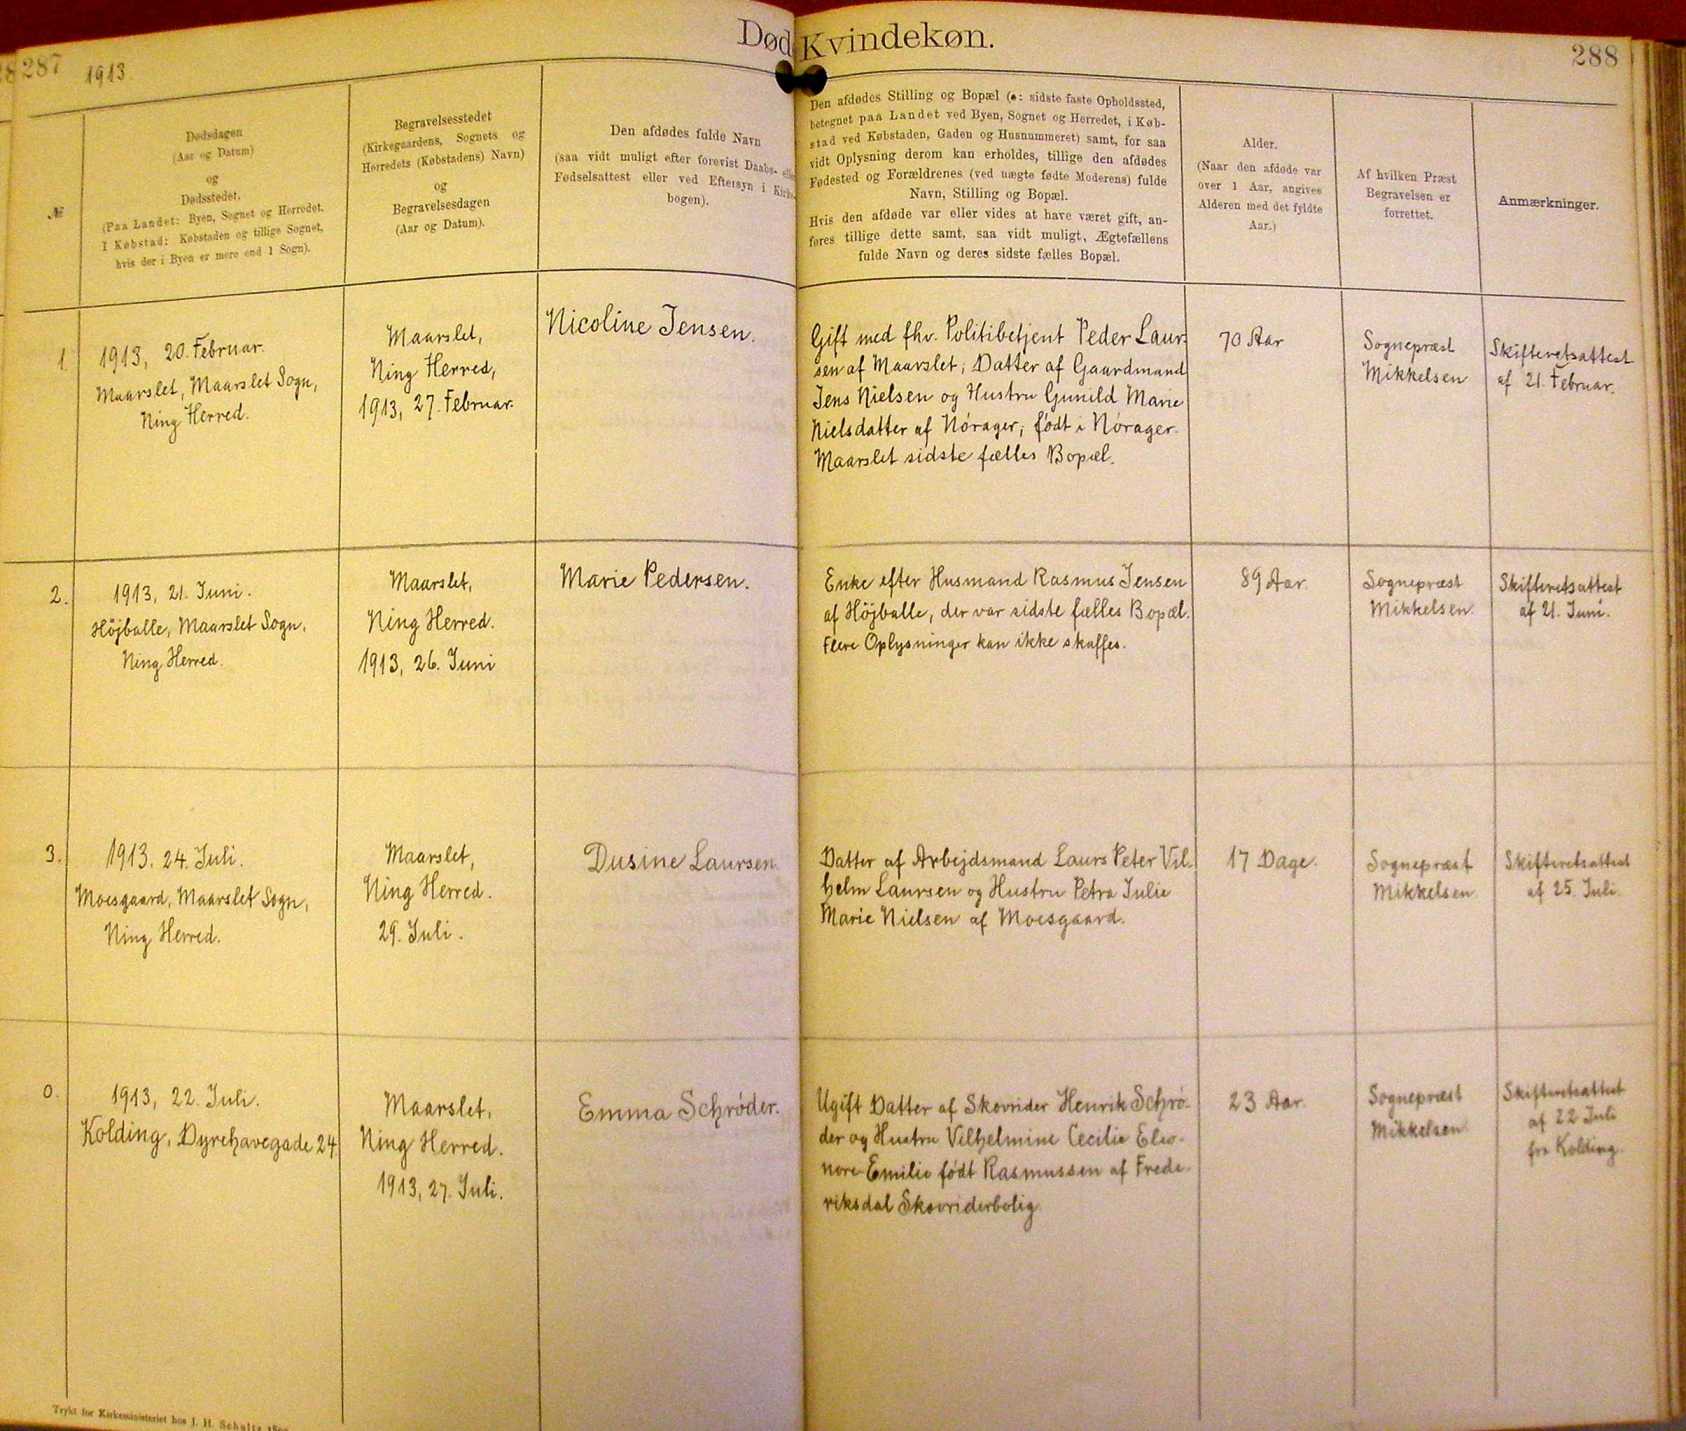 Død Kvindekøn.
287
1913
288
№
Dødsdagen
(Aar og Datum)
og
Dødsstedet.
(Paa Landet: Byen, Sognet og Herredet.
I Købstad: Købstaden og tillige Sognet,
hvis der i Byen er mere end 1 Sogn).
Begravelsesstedet
(Kirkegaardens, Sognets og
Herredets (Købstadens) Navn)
og
Begravelsesdagen
(Aar og Datum).
Den afdødes fulde Navn
(saa vidt muligt efter forevist Daabs- eller
Fødselsattest eller ved Eftersyn i Kirke-
bogen).
Den afdødes Stilling og Bopæl (ɔ: sidste faste Opholdssted,
betegnet paa Landet ved Byen, Sognet og Herredet, i Køb-
stad ved Købstaden, Gaden og Husnummeret) samt, for saa
vidt Oplysning derom kan erholdes, tillige den afdødes
Fødested og Forældrenes (ved uægte fødte Moderens) fulde
Navn, Stilling og Bopæl.
Hvis den afdøde var eller vides at have været gift, an-
føres tillige dette samt, saa vidt muligt, Ægtefællens
fulde Navn og deres sidste fælles Bopæl.
Alder.
(Naar den afdøde var
over 1 Aar, angives
Alderen med det fyldte
Aar.)
Af hvilken Præst
Begravelsen er
forrettet.
Anmærkninger.
1.
1913, 20. Februar.
Maarslet, Maarslet Sogn,
Ning Herred.
Maarslet,
Ning Herred,
1913, 27. Februar.
Nicoline Jensen.
Gift med fhv. Politibetjent Peder Laur-
sen af Maarslet; Datter af Gaardmand
Jens Nielsen og Hustru Gunild Marie
Nielsdatter af Nórager; født i Nórager.
Maarslet sidste fælles Bopæl.
70 Aar
Sognepræst
Mikkelsen
Skifteretsattest
af 21. Februar.
2.
1913, 21. Juni.
Højballe, Maarslet Sogn,
Ning Herred.
Maarslet,
Ning Herred.
1913, 26. Juni
Marie Pedersen.
Enke efter Husmand Rasmus Jensen
af Højballe, der var sidste fælles Bopæl.
Flere Oplysninger kan ikke skaffes.
89 Aar.
Sognepræst
Mikkelsen.
Skifteretsattest
af 21. Juni.
3.
1913. 24. Juli.
Moesgaard, Maarslet Sogn,
Ning Herred.
Maarslet,
Ning Herred.
29. Juli.
Dusine Laursen.
Datter af Arbejdsmand Laurs Peter Vil-
helm Laursen og Hustru Petra Julie
Marie Nielsen af Moesgaard.
17 Dage.
Sognepræst
Mikkelsen
Skifteretsattest
af 25. Juli.
0.
1913, 22. Juli.
Kolding, Dyrehavegade 24
Maarslet,
Ning Herred.
1913, 27. Juli.
Emma Schrøder.
Ugift Datter af Skovrider Henrik Schrö-
der og Hustru Vilhelmine Cecilie Eleo-
nore Emilie født Rasmussen af Frede-
riksdal Skovriderbolig.
23 Aar.
Sognepræst
Mikkelsen
Skifteretsattest
af 22 Juli
fra Kolding.
Trykt for Kirkeministeriet hos J. H. Schultz